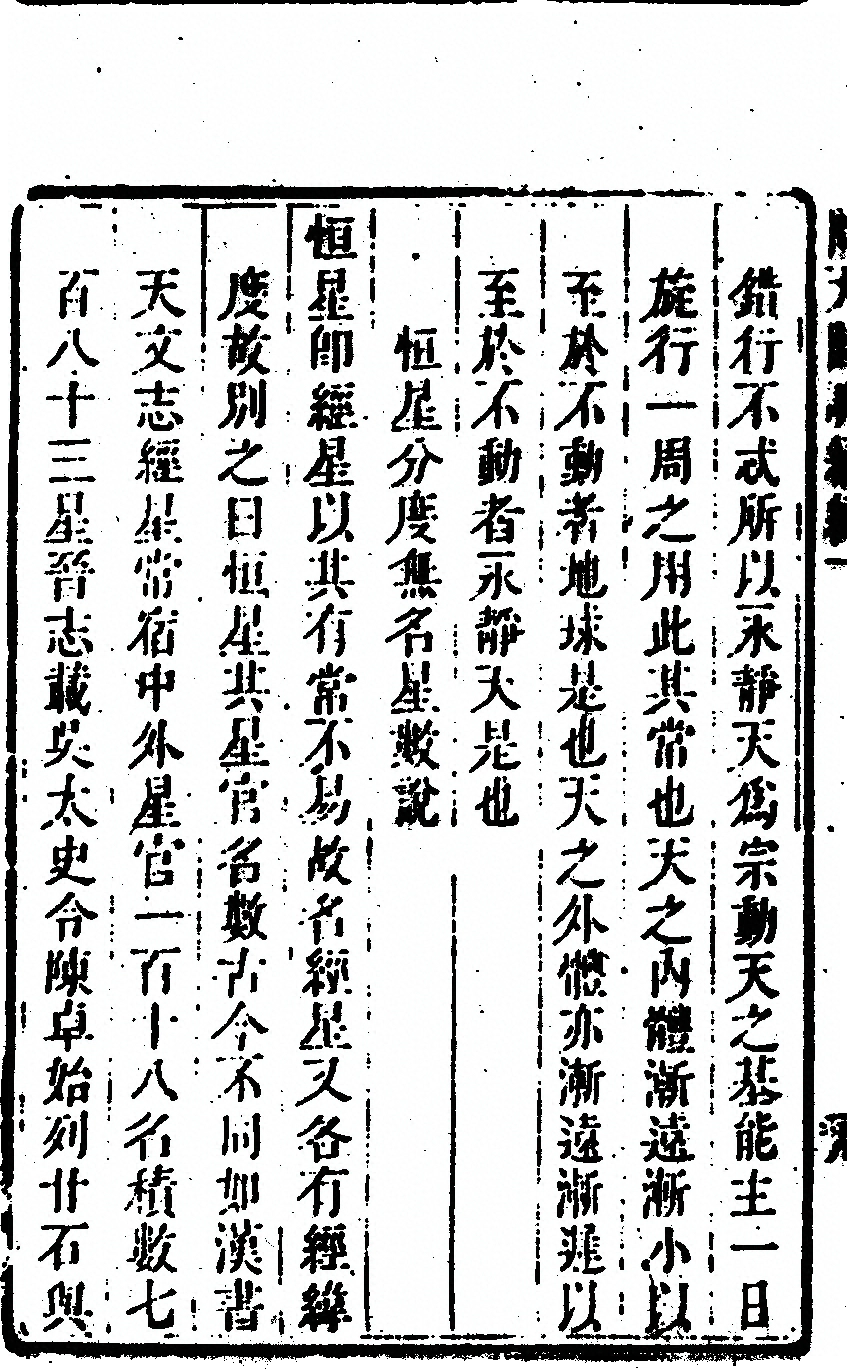 錯行不忒所以永靜天爲宗動天之基能主一日
旋行一周之用此其常也天之內體漸遠漸小以
至於不動者地球是也天之外體亦漸遠漸遲以
至於不動者永靜天是也
恒星分度無名星數說
恒星卽經星以其有常不易故名經星又各有經緯
度故別之曰恒星其星官名數古今不同如漢書
天文志經星常宿中外星官一百十八名積數七
百八十三星晉志載吳太史令陳卓始列甘石與